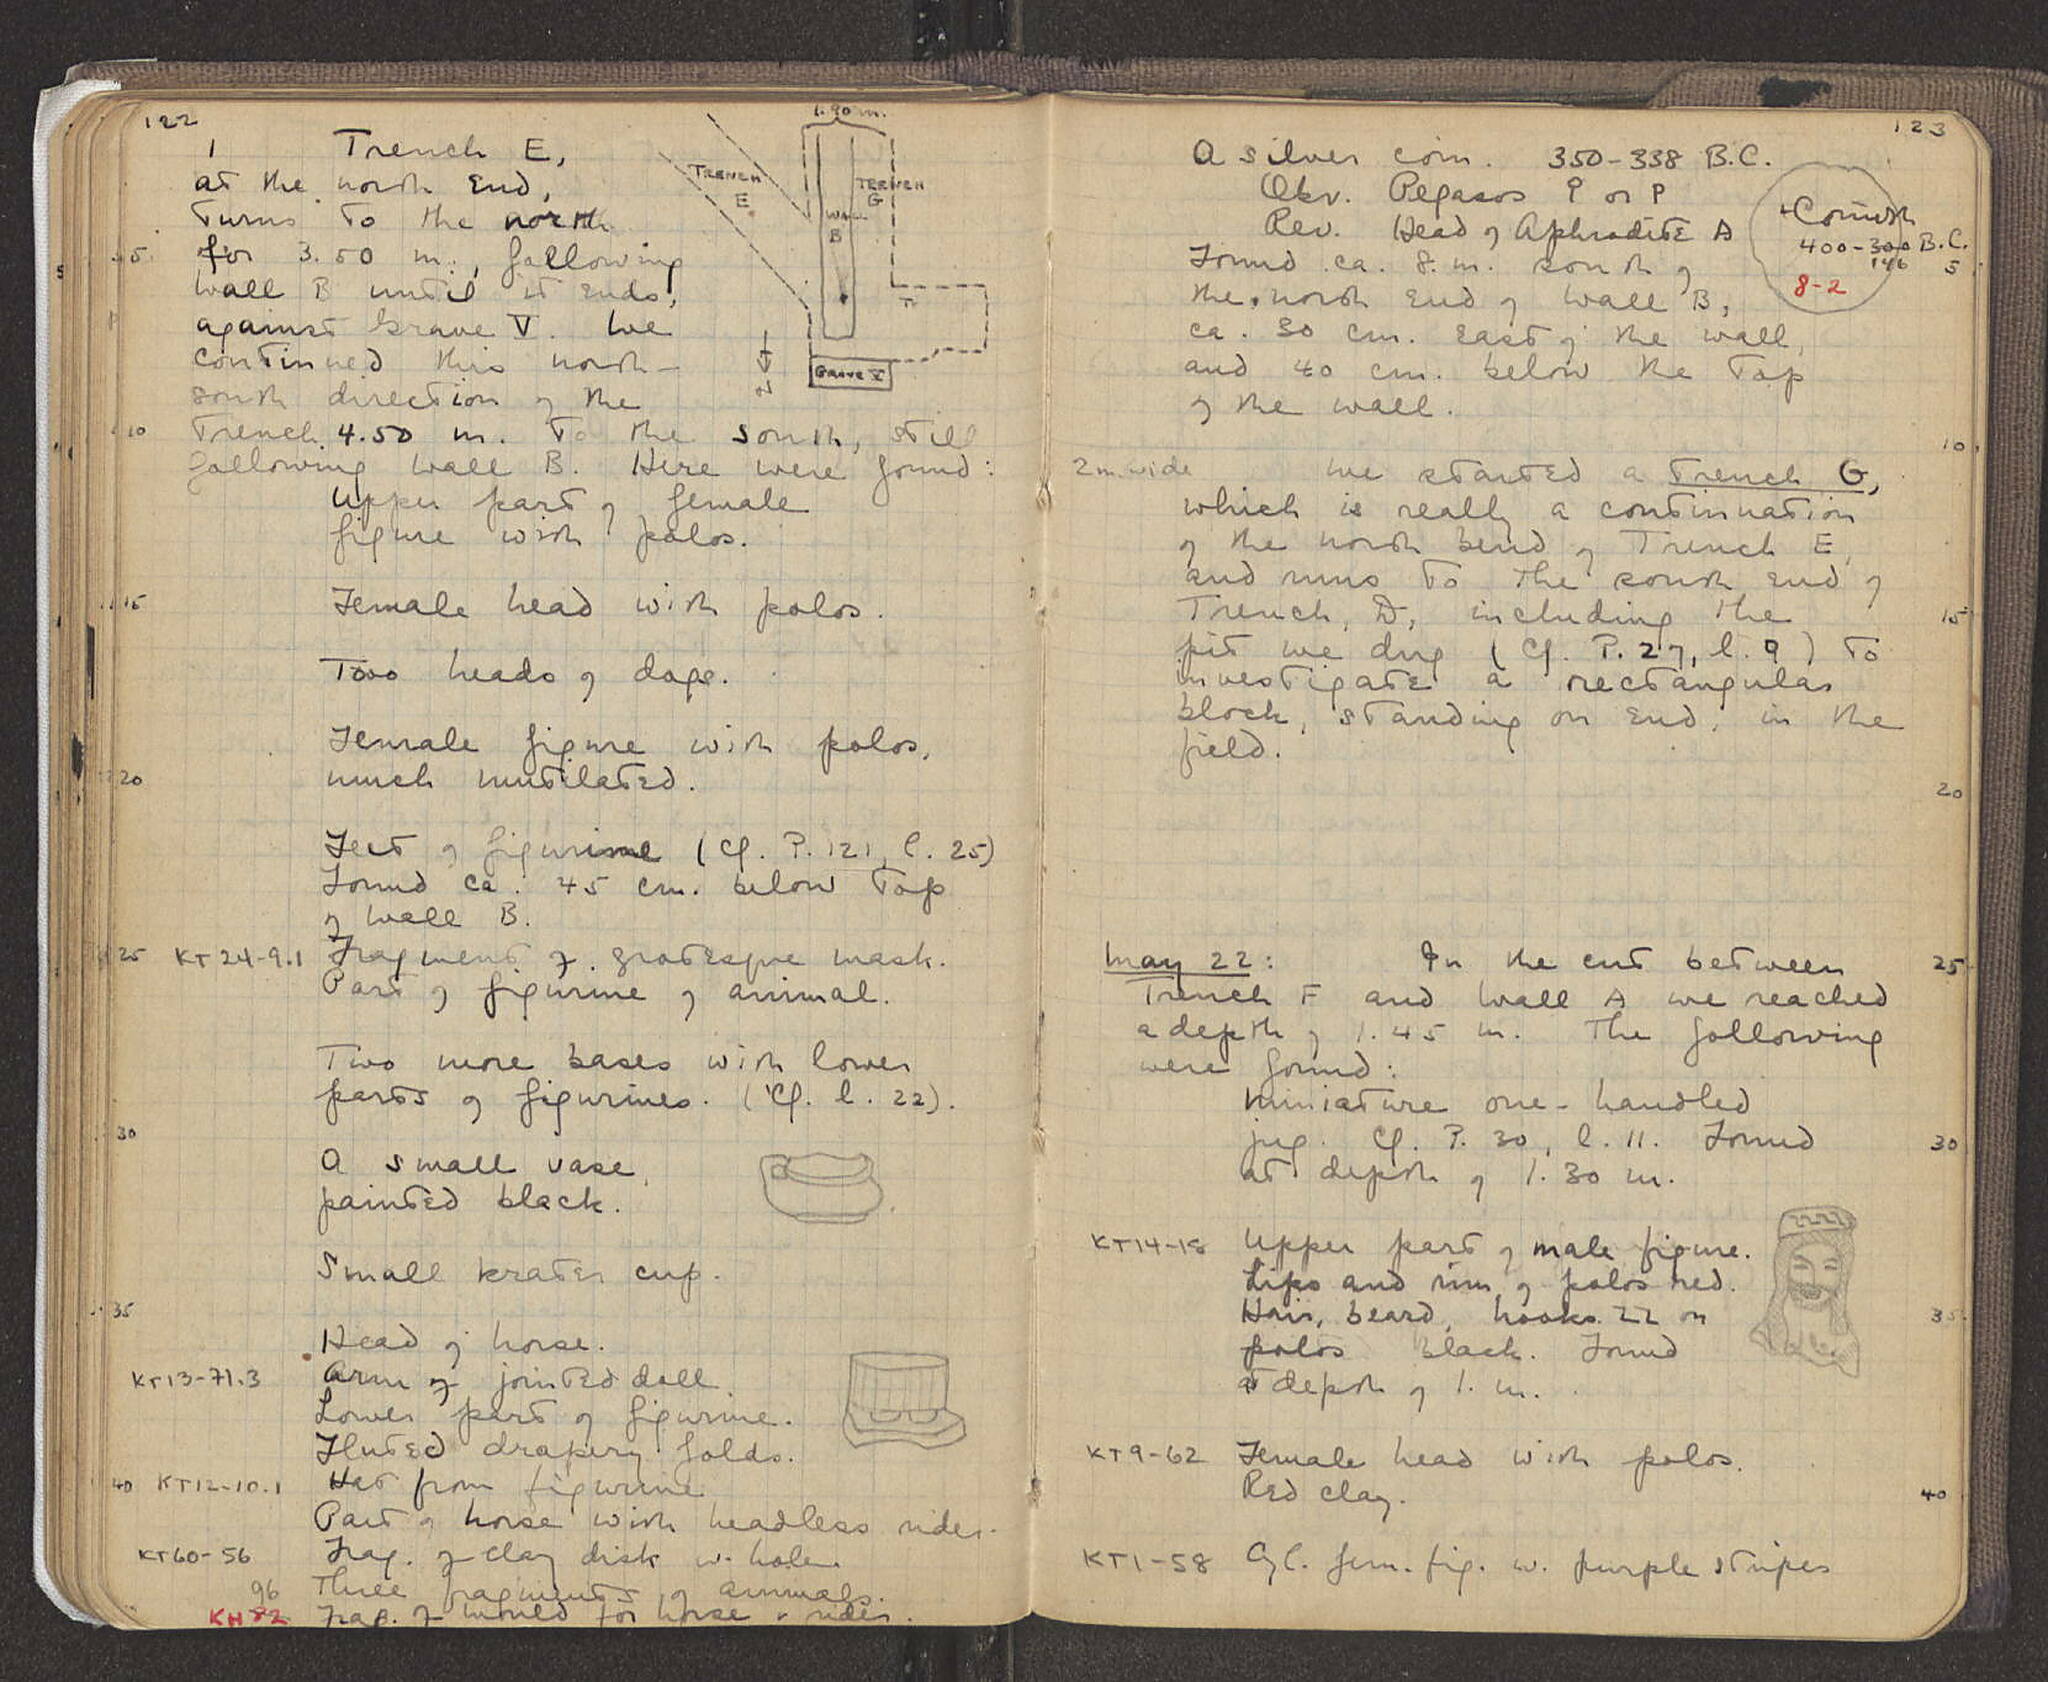 122
1 Trench E,
at the north end,
turns to the north
5 for 3.50 m., following
wall B until it ends,
against Grave V. We
continued this north-
south direction of the
10 Trench 4.50 m. to the south, still
following wall B. Here were found:
Upper part of female
figure with polos.
15 Female head with polos.
Two heads of dogs.
Female figure with polos,
20 much mutilated.
Feet of figurine (Cf. P. 121, l. 25)
Found ca. 45 cm. below top
of wall B.
25 KT 24-9.1 Fragment of grotesque mask.
Part of figurine of animal.
Two more bases with lower
parts of figurines. (Cf. l. 22).
30
A small vase,
painted black.
Small krater cup.
35
Head of horse.
KT13-71.3 Arm of jointed doll.
Lower part of figurine.
Fluted drapery folds.
40 KT12-10.1 Hat from figurine
Part of horse with headless rider.
KT60-56 Frag. of clay disk w. holes.
96 Three fragments of animals.
KH 82 Frag. of mould for horse & rider.
1.90 m.
TRENCH
E
WALL
B
TRENCH
G
Grave V
N
123
A silver coin. 350-338 B.C.
Obv. Pegasos Ϙ or P
Rev. Head of Aphrodite A
Corinth
400-300 B.C.
146
8-2
5
Found ca. 8. m. south of
the north end of wall B,
ca. 30 cm. east of the wall,
and 40 cm. below the top
of the wall.
10
2 m. wide We started a Trench G,
which is really a continuation
of the north bend of Trench E,
and runs to the south end of
Trench D, including the 15
pit we dug (Cf. P. 27, l. 9) to
investigate a rectangular
block, standing on end, in the
field.
20
May 22: In the cut between 25
Trench F and Wall A we reached
a depth of 1.45 m. The following
were found:
Miniature one-handled
jug. Cf. P. 30, l. 11. Found 30
at depth of 1.30 m.
KT14-18 Upper part of male figure.
Lips and rim of polos red.
Hair, beard, hooks ZZ on 35
polos black. Found
at depth of 1. m.
KT9-62 Female head with polos.
Red clay. 40
KT1-58 Cyl. fem. fig. w. purple stripes